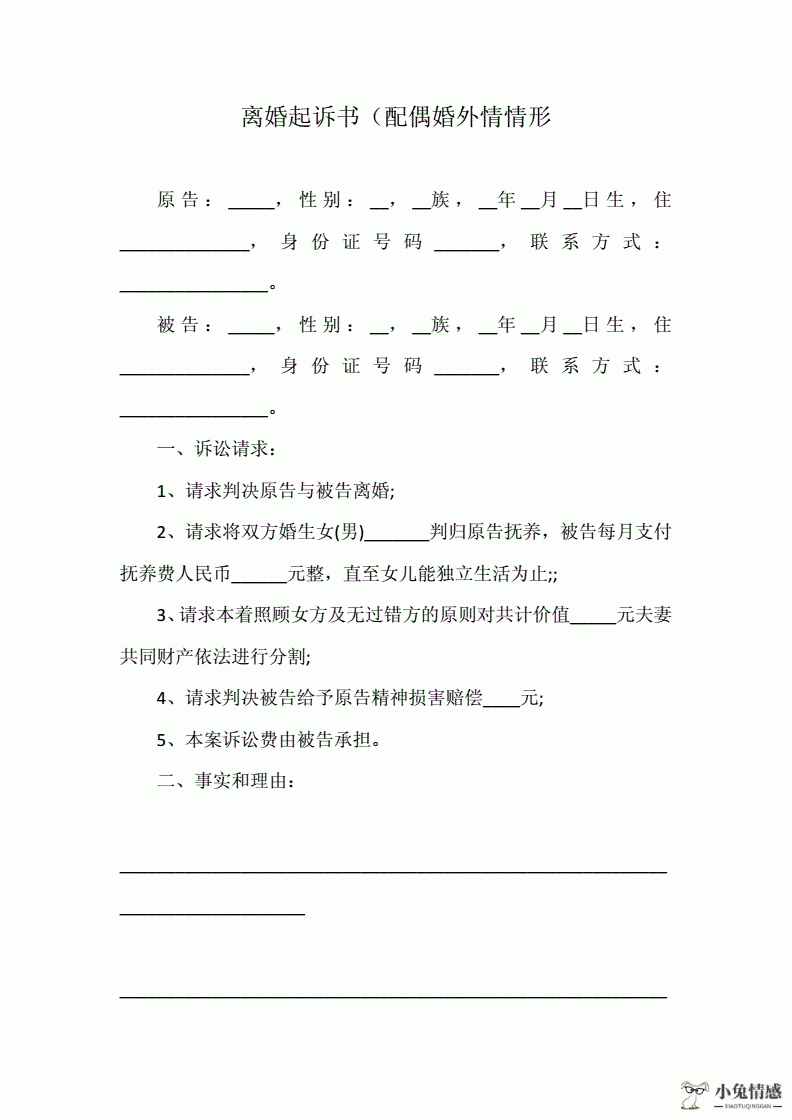 离婚起诉书（配偶婚外情情形
原告：_____，性别：__，__族，__年__月__日生，住
______________，身份证号码_______，联系方式：
________________。
被告：_____，性别：__，__族，__年__月__日生，住
______________，身份证号码_______，联系方式：
________________。
一、诉讼请求：
1、请求判决原告与被告离婚;
2、请求将双方婚生女(男)_______判归原告抚养，被告每月支付
抚养费人民币______元整，直至女儿能独立生活为止;;
3、请求本着照顾女方及无过错方的原则对共计价值_____元夫妻
共同财产依法进行分割;
4、请求判决被告给予原告精神损害赔偿____元;
5、本案诉讼费由被告承担。
二、事实和理由：
___________________________________________________________
____________________
___________________________________________________________
小兔情感
XIAOTUQINGGAN